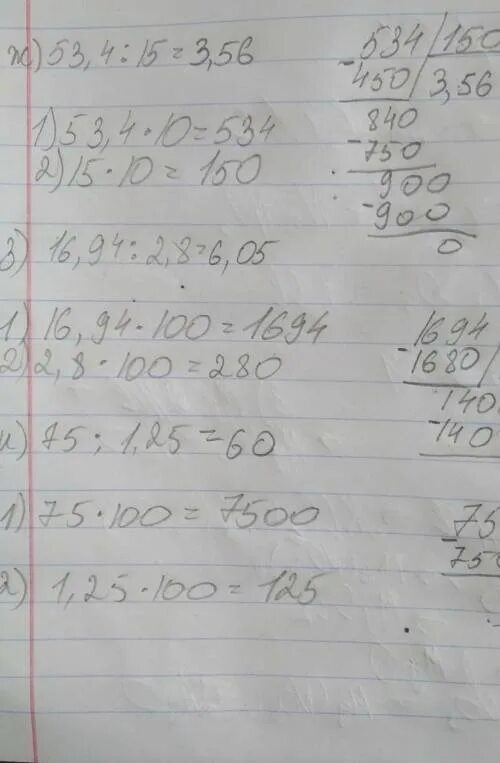 ж) 53,4:15=3,56
534 150
-450 3,56
840
-750
900
-900
0
1) 53,4·10=534
2) 15·10=150
з) 16,94:2,8=6,05
1) 16,94·100=1694
2) 2,8·100=280
1694
-1680
140
-140
и) 75:1,25=60
1) 75·100=7500
2) 1,25·100=125
75
-750